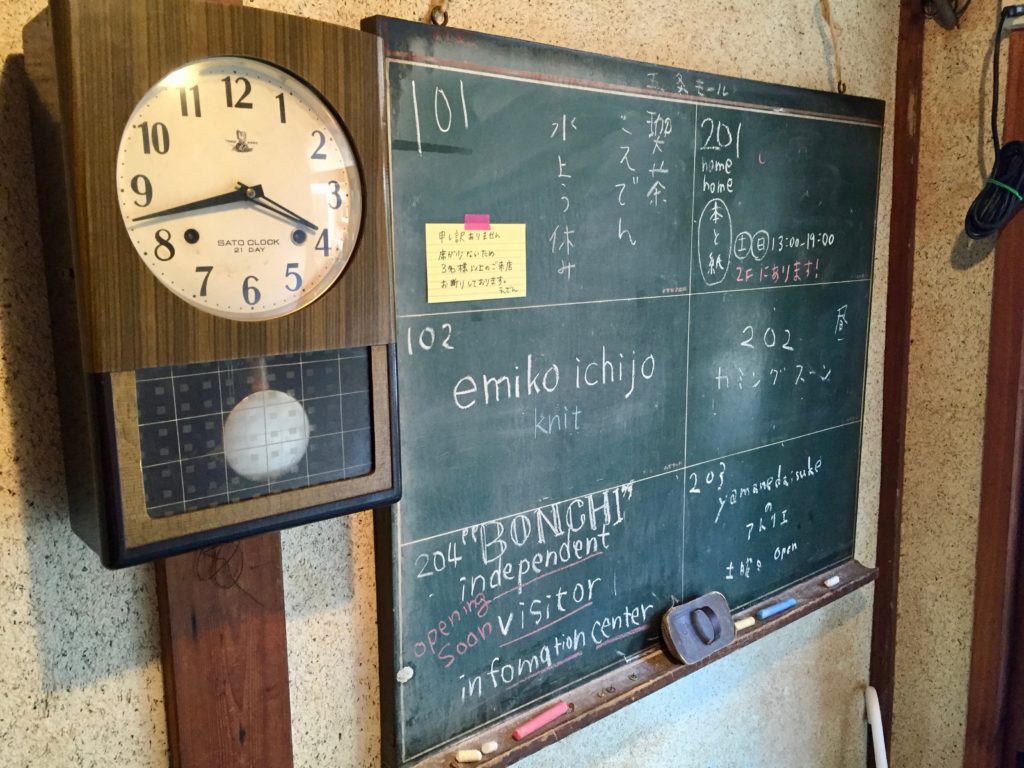 12
1
2
3
4
5
6
7
8
9
10
11
SATO CLOCK
21 DAY
五条モール
101
喫茶
こえでん
水よう休み
申し訳ありません
席が少ないため
3名様以上のご来店
お断りしております。
201
home
home
本と紙
土日 13:00-19:00
2Fにあります!
102
emiko ichijo
knit
202
昼
カミングスーン
!
204 "BONCHI"
independent
opening soon
visitor
infomation center
203
yamanedaisuke
の
アトリエ
土曜日 open